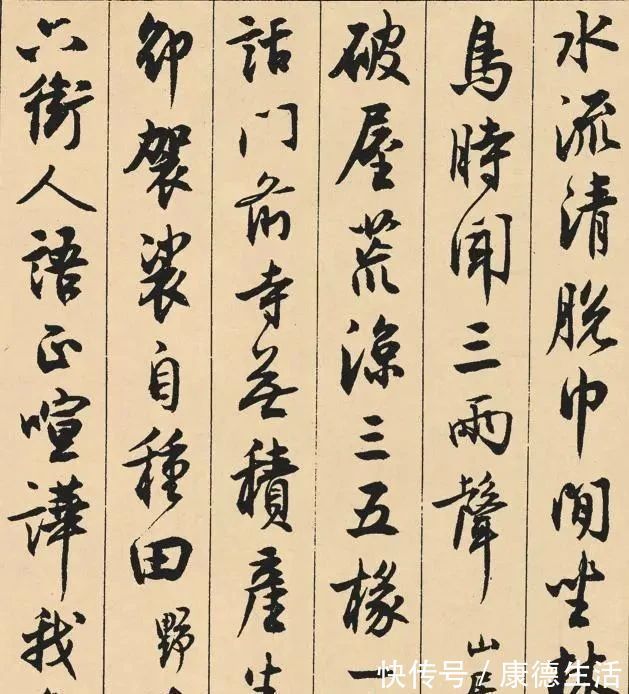 水流清脱巾閒坐
鳥時聞三兩聲 山
破屋荒涼三五椽一
話门前寺無積產生
卸袈裟自種田 野
六街人語正喧譁我
快传号 / 康德生活